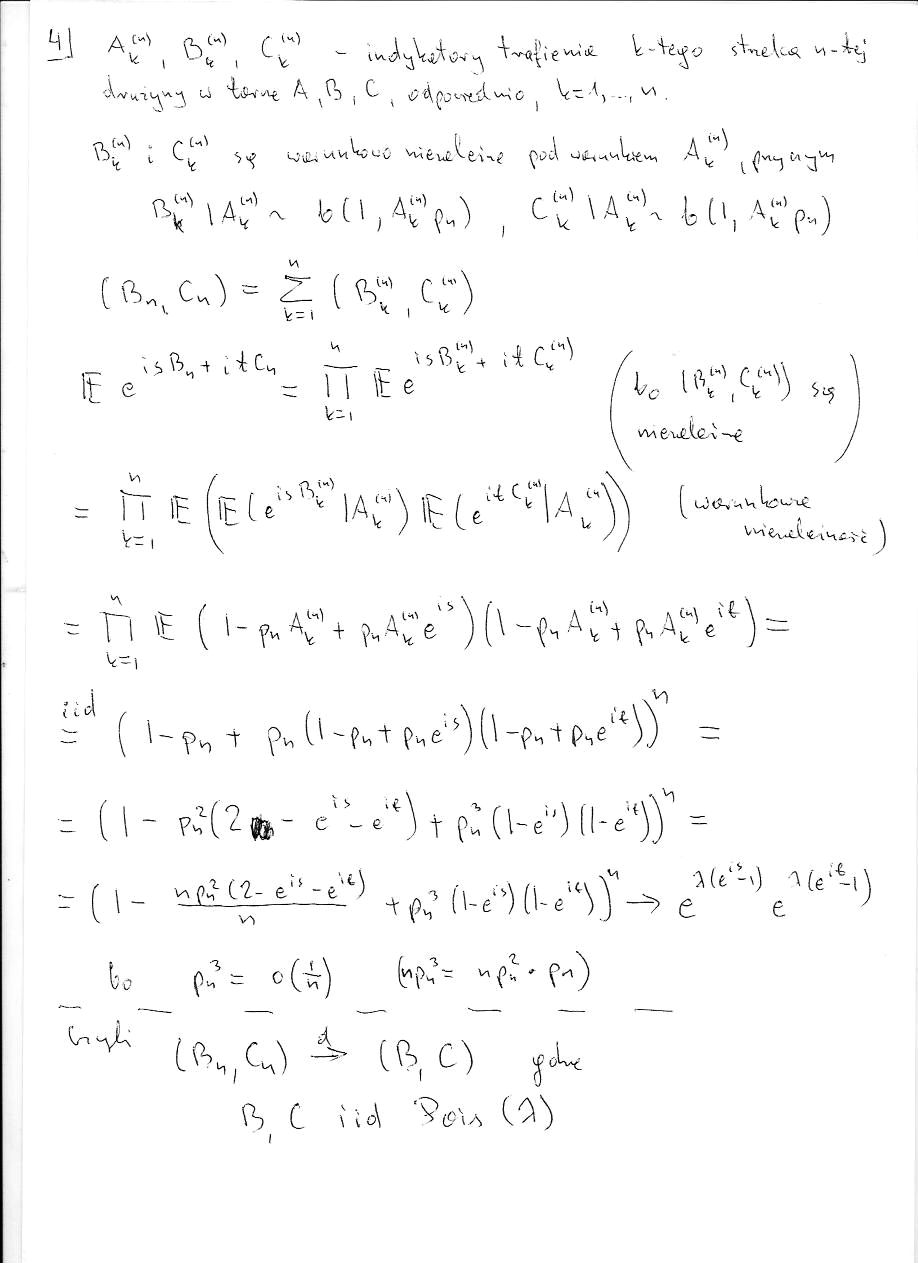 4] A_k^{(n)}, B_k^{(n)}, C_k^{(n)} - indykatory trafienia k-tego strzelca n-tej
drużyny w tarcze A, B, C, odpowiednio, k=1,..., n.
B_k^{(n)} i C_k^{(n)} są warunkowo niezależne pod warunkiem A_k^{(n)}, przy czym
B_k^{(n)} | A_k^{(n)} ~ b(1, A_k^{(n)} p_n), C_k^{(n)} | A_k^{(n)} ~ b(1, A_k^{(n)} p_n)
(B_n, C_n) = \sum_{k=1}^{n} (B_k^{(n)}, C_k^{(n)})
𝔼 e^{isB_n + itC_n} = \prod_{k=1}^{n} 𝔼 e^{isB_k^{(n)} + itC_k^{(n)}} (bo (B_k^{(n)}, C_k^{(n)}) są
niezależne)
= \prod_{k=1}^{n} 𝔼 (𝔼(e^{isB_k^{(n)}} | A_k^{(n)}) 𝔼(e^{itC_k^{(n)}} | A_k^{(n)})) (warunkowa
niezależność)
= \prod_{k=1}^{n} 𝔼 (1 - p_n A_k^{(n)} + p_n A_k^{(n)} e^{is}) (1 - p_n A_k^{(n)} + p_n A_k^{(n)} e^{it}) =
iid
= (1 - p_n + p_n (1 - p_n + p_n e^{is}) (1 - p_n + p_n e^{it}))^n =
= (1 - p_n^2 (2 - e^{is} - e^{it}) + p_n^3 (1 - e^{is}) (1 - e^{it}))^n =
= (1 - \frac{n p_n^2 (2 - e^{is} - e^{it})}{n} + p_n^3 (1 - e^{is}) (1 - e^{it}))^n → e^{λ(e^{is} - 1)} e^{λ(e^{it} - 1)}
bo p_n^3 = o(\frac{1}{n}) (n p_n^3 = n p_n^2 · p_n)
Czyli (B_n, C_n) \xrightarrow{d} (B, C) gdzie
B, C iid Pois (λ)